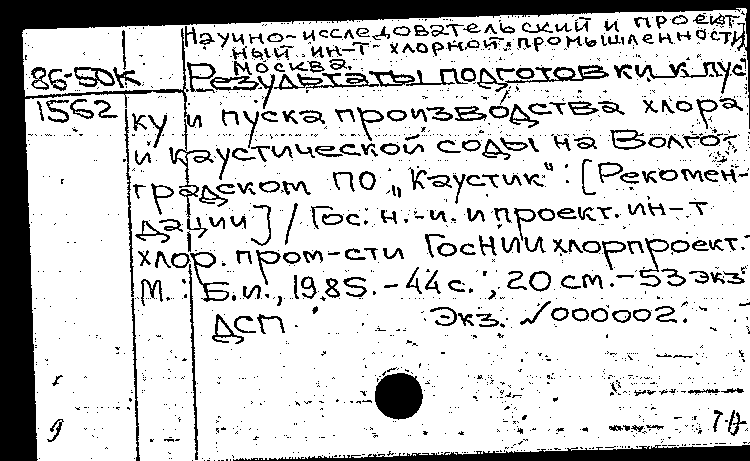 Научно-исследовательский и проект-
ный ин-т хлорной промышленности,
Москва.
86-50К Результаты подготовки к пус
1562 ку и пуска производства хлора
и каустической соды на Волго-
градском ПО „Каустик“: [Рекомен-
дации] / Гос. н.-и. и проект. ин-т
хлор. пром-сти ГосНИИхлорпроект.-
М.: Б.и., 1985. - 44 с.; 20 см. - 53 экз
ДСП. Экз. √000002.
9